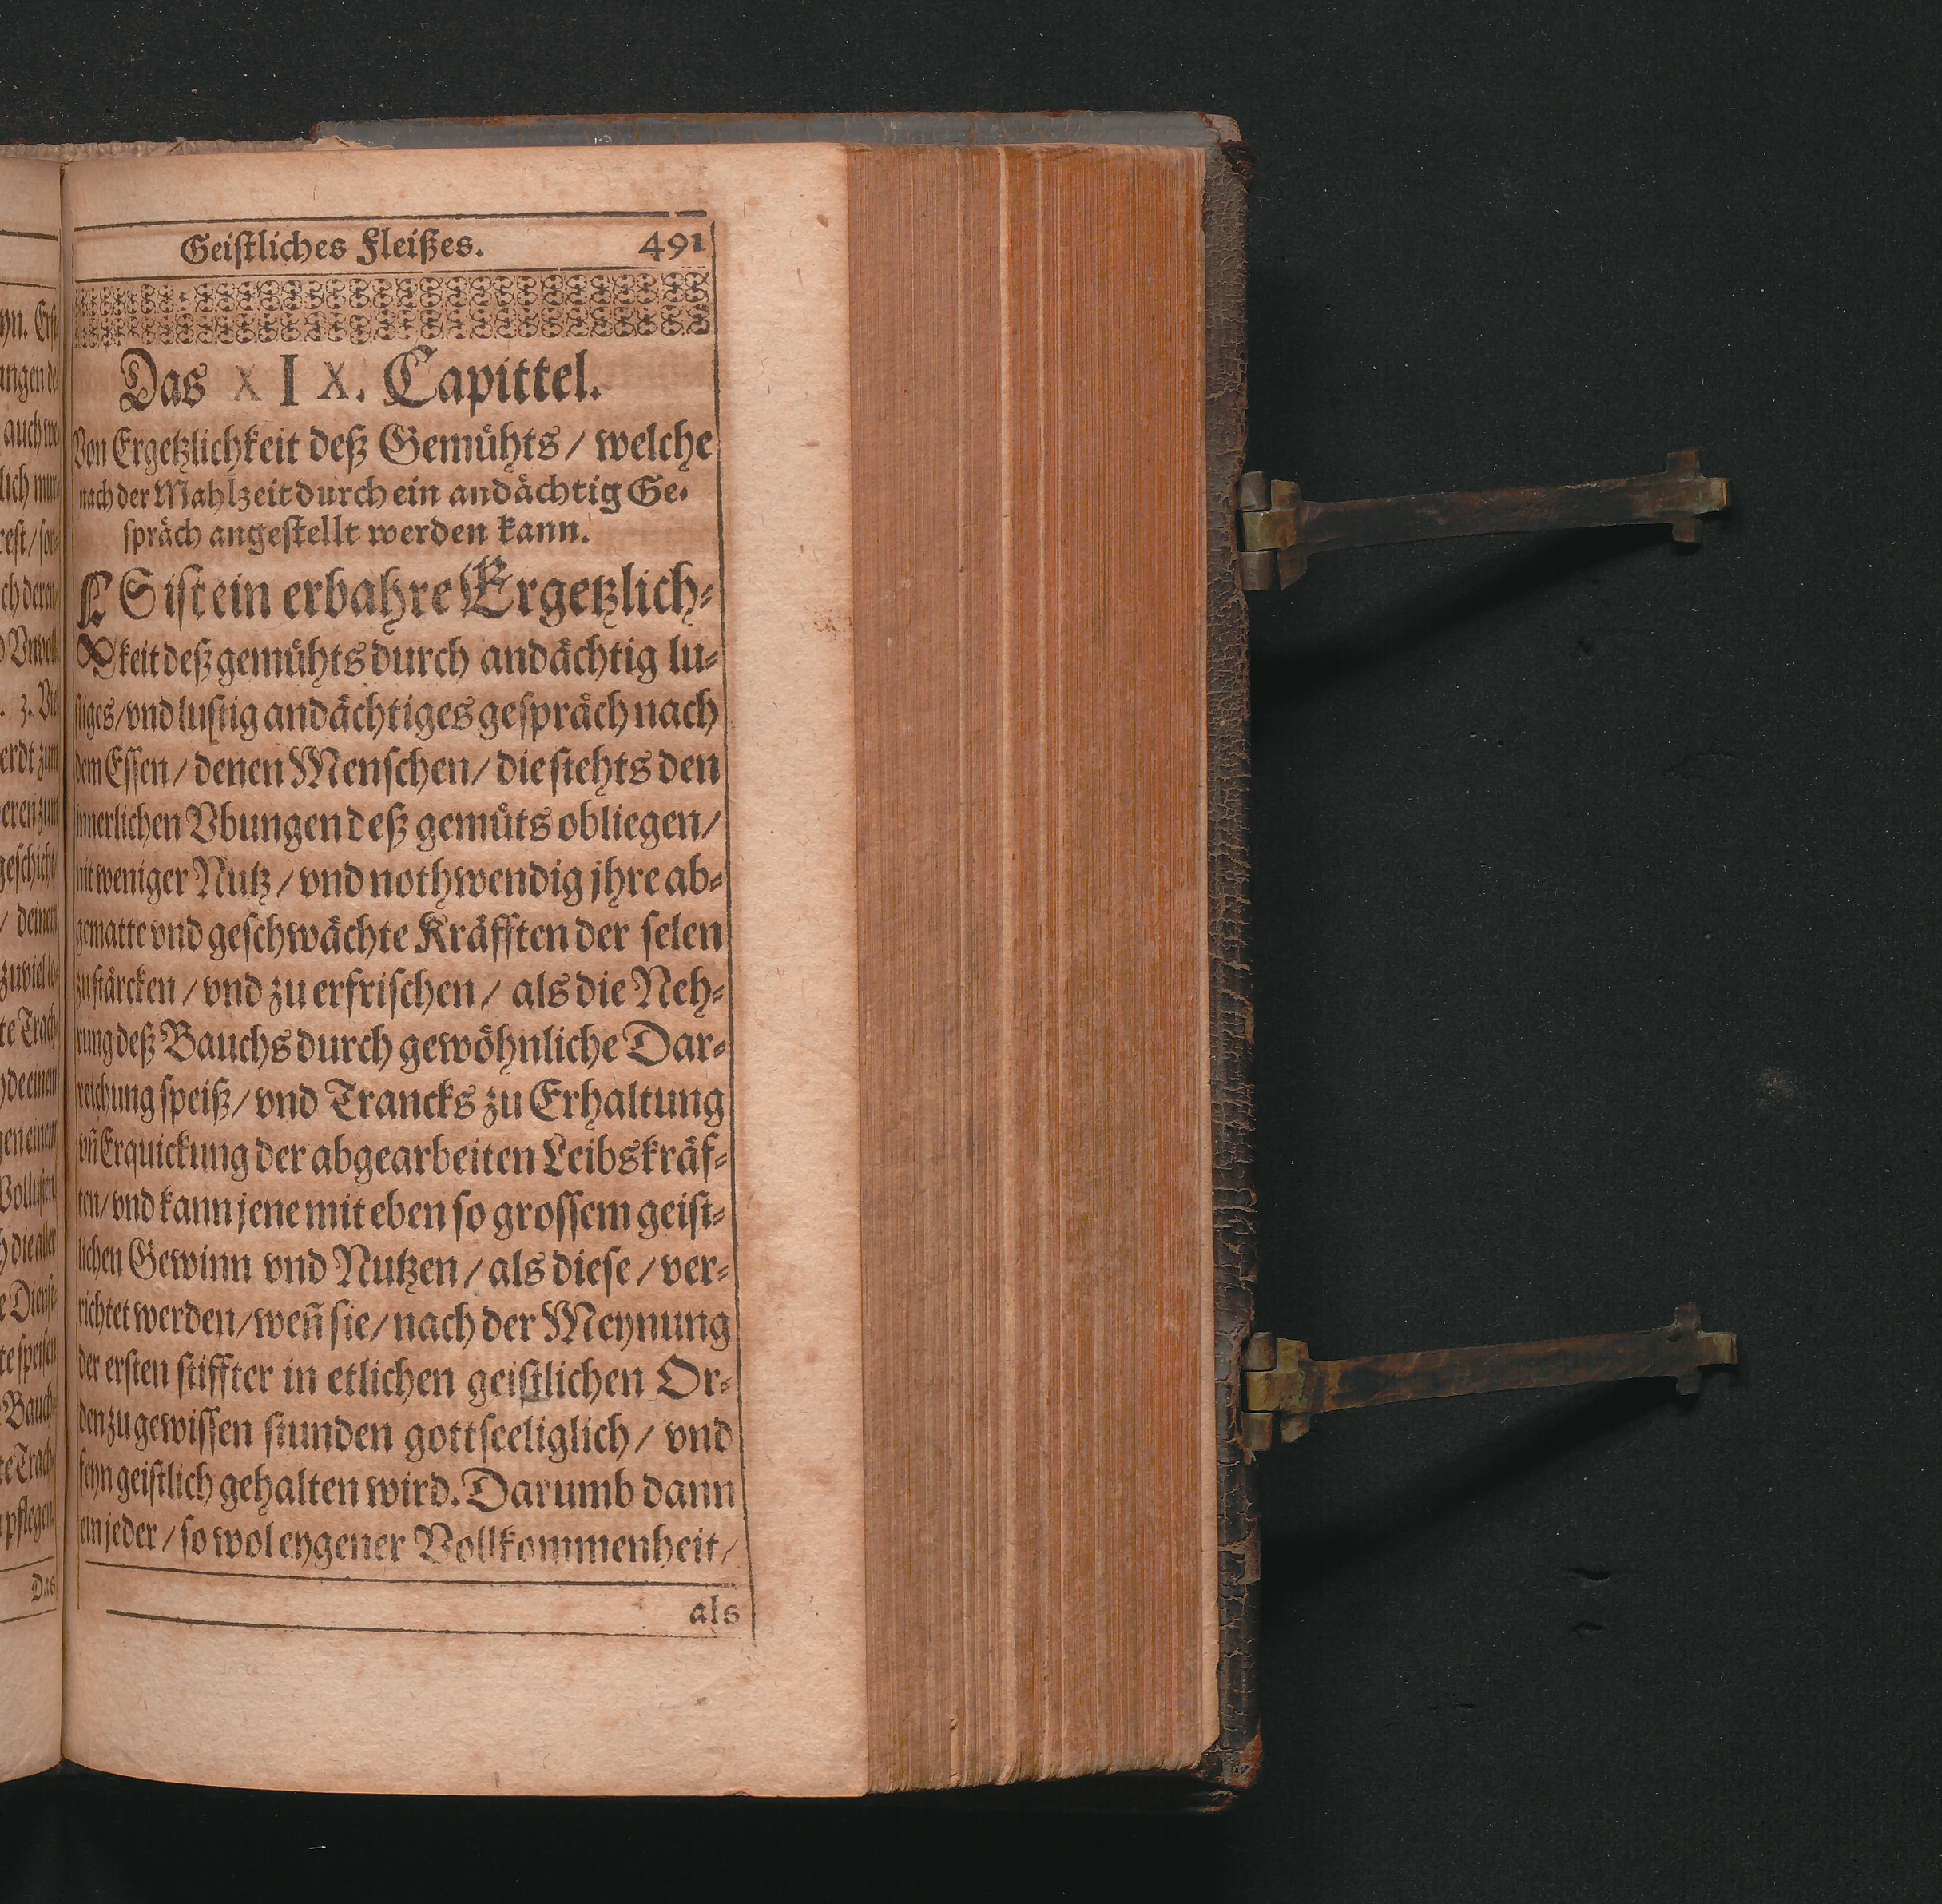 Geistliches Fleißes. 491
Das XIX. Capittel.
Von Ergetzlichkeit deß Gemühts / welche
nach der Mahlzeit durch ein andächtig Ge-
spräch angestellt werden kann.
ES ist ein erbahre Ergetzlich-
keit deß gemühts durch andächtig lu-
stiges / vnd lustig andächtiges gespräch nach
dem Essen / denen Menschen / die stehts den
innerlichen Vbungen deß gemüts obliegen /
nit weniger Nutz / vnd nothwendig jhre ab-
gematte vnd geschwächte Kräfften der selen
zustärcken / vnd zu erfrischen / als die Neh-
rung deß Bauchs durch gewöhnliche Dar-
reichung speiß / vnd Trancks zu Erhaltung
vñ Erquickung der abgearbeiten Leibskräf-
ten / vnd kann jene mit eben so grossem geist-
lichen Gewinn vnd Nutzen / als diese / ver-
richtet werden / weñ sie / nach der Meynung
der ersten stiffter in etlichen geistlichen Or-
den zu gewissen stunden gottseeliglich / vnd
feyn geistlich gehalten wird. Darumb dann
ein jeder / so wol eygener Vollkommenheit /
als